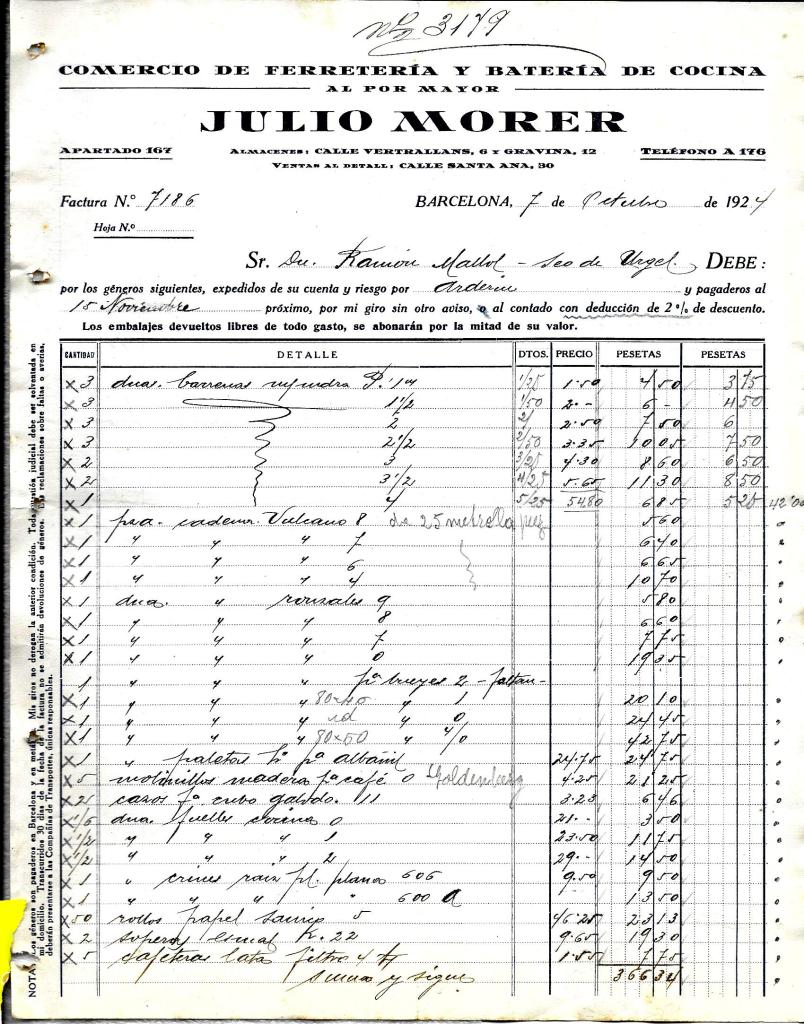 Nº 3179
COMERCIO DE FERRETERÍA Y BATERÍA DE COCINA
AL POR MAYOR
JULIO MORER
APARTADO 167
ALMACENES: CALLE VERTRALLANS, 6 Y GRAVINA, 12
VENTAS AL DETALL: CALLE SANTA ANA, 30
TELÉFONO A 176
Factura N.º 7186
BARCELONA, 7 de Octubre de 1924
Hoja N.º
Sr. Dn. Ramón Mallol - Seo de Urgel. DEBE:
por los géneros siguientes, expedidos de su cuenta y riesgo por y pagaderos al
15 Noviembre próximo, por mi giro sin otro aviso, o al contado con deducción de 2% de descuento.
Los embalajes devueltos libres de todo gasto, se abonarán por la mitad de su valor.
CANTIDAD DETALLE DTOS. PRECIO PESETAS PESETAS
x 3 dnas. barrenas P. 1/25 1.50 4 50 3 75
x 3 1 1/2 1/50 2.- 6 - 4 50
x 3 2 2/ 2.50 7 50 6
x 3 2 1/2 2/50 3.35 10 05 7 50
x 2 3 3/25 4.30 8 60 6 50
x 2 3 1/2 4/25 5.65 11 30 8 50
x 1 4 5/25 54.80 6 85 5 25 42'00
x 1 pza. cadena Vulcano 8 da 25 metros la pieza 5 60
x 1 " " " 7 6 40
x 1 " " " 6 6 65
x 1 " " " 4 10 70
x 1 dna. " ronzales 9 5 80
x 1 " " " 8 6 60
x 1 " " " 7 7 75
x 1 " " " 0 19 35
" " " pª bueyes 2 - faltan -
x 1 " " " 80x40 " 1 20 10
x 1 " " " id " 0 24 45
x 1 " " " 80x50 " 4/0 42 75
x 1 " paletas pª albañil 24.75 24 75
x 5 molinillos madera pª café 0 Goldenberg 4.25 21 25
x 2 cazos fª cubo galvdo. 111 3.23 6 46
x 1/6 dna. fuelles cocina 0 21.- 3 50
x 1/2 " " " 1 23.50 11 75
x 1/2 " " " 2 29.- 14 50
x 1 " crines raiz pl. planos 606 9.50 9 50
x 1 " " " " 600 a 13 50
x 50 rollos papel 5 46.25 23 13
x 2 soperas esmal K. 22 9.65 19 30
x 5 cafeteras lata filtro 4 1.55 7 75
suma y sigue 366 34
NOTA: Los géneros son pagaderos en Barcelona y en metálico. Mis giros no derogan la anterior condición. Toda cuestión judicial debe ser solventada en
mi domicilio. Transcurridos 30 días de la fecha de la factura no se admitirán devoluciones de géneros. Las reclamaciones sobre faltas o averías,
deberán presentarse a las Compañías de Transportes, únicas responsables.